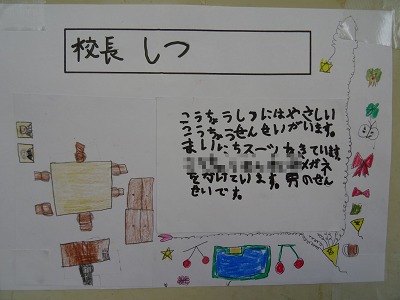 校長 しつ
こうちょうしつにはやさしい
こうちょうせんせいがいます。
まいにちスーツをきています。
メガネ
をかけています。男のせん
せいです。